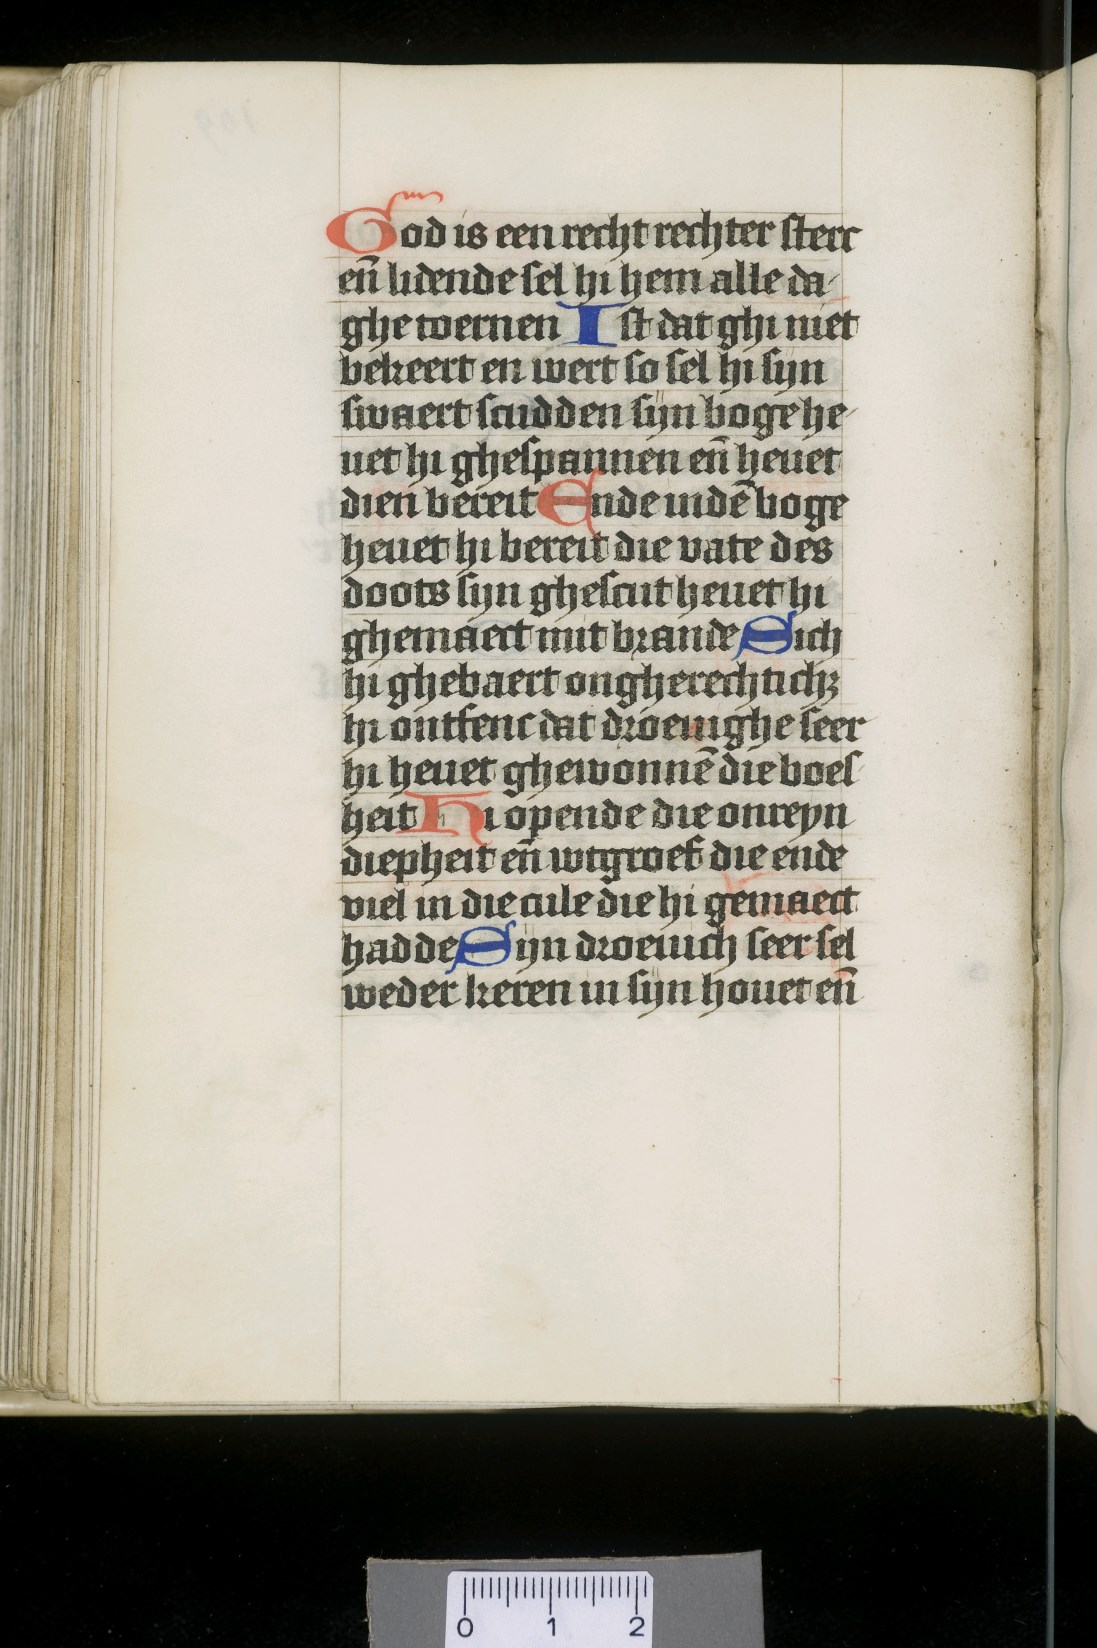 God is een recht rechter sterc
en̄ lidende sel hi hem alle da-
ghe toernen Ist dat ghi niet
bekeert en wert so sel hi sijn
swaert scudden sijn boge he-
uet hi ghespannen en̄ heuet
dien bereit Ende indē boge
heuet hi bereit die vate des
doots sijn ghescut heuet hi
ghemaect mit brande Sich
hi ghebaert ongherechtichꝫ
hi ontfenc dat droeuighe seer
hi heuet ghewonnē die boes-
heit Hi opende die onreyn
diepheit en̄ wtgroef die ende
viel in die cule die hi gemaect
hadde Sijn droeuich seer sel
weder keren in sijn houet en̄
0 1 2